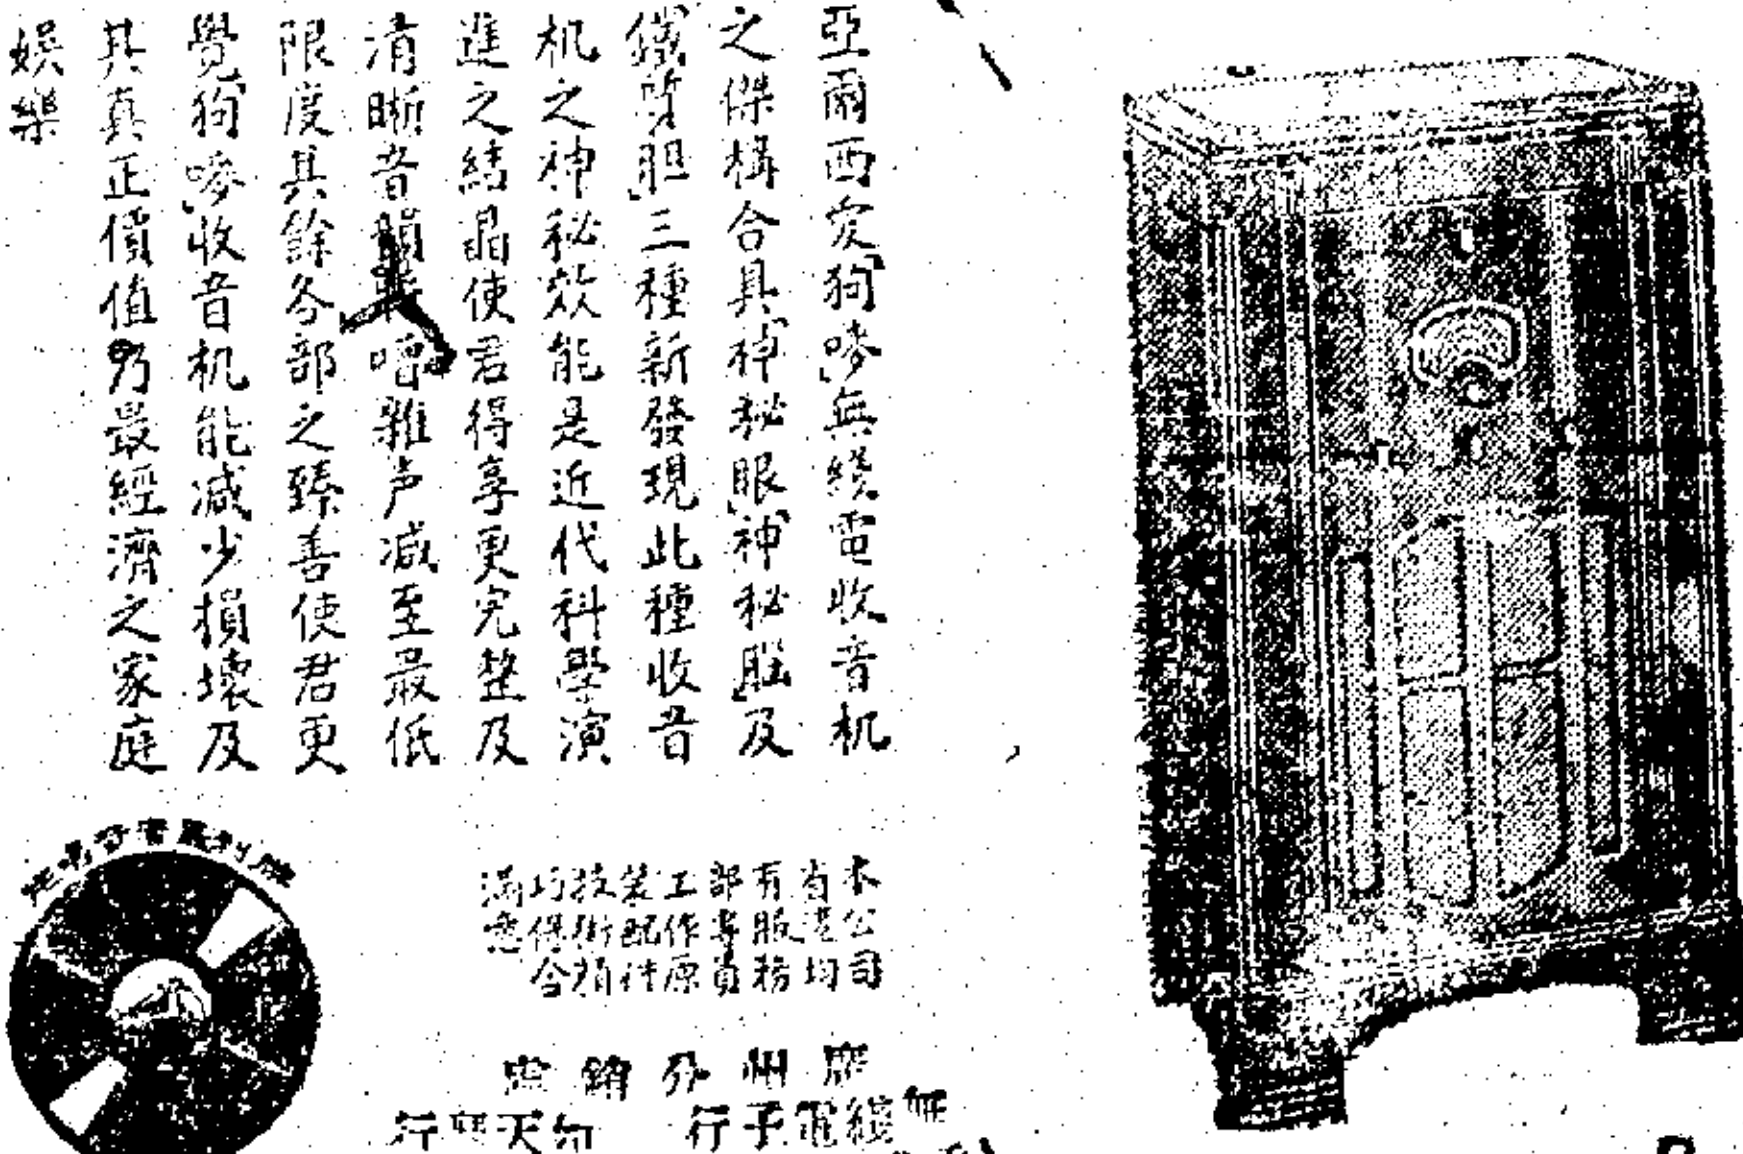 亞爾西愛「狗嘜」無綫電收音机
之傑構合具「神秘眼」「神秘腦」及
「鐵質胆」三種新發現此種收音
机之神秘效能是近代科學演
進之結晶使君得享更完整及
清晰音韻嘈雜声减至最低
限度其餘各部之臻善使君更
覺「狗嘜」收音机能减少損壞及
其真正價值乃最經濟之家庭
娛樂
本公司
省港均
有服務
部專員
工作原
裝配件
技術精
巧保合
滿意
廣州分銷處
無綫電
行
天
行